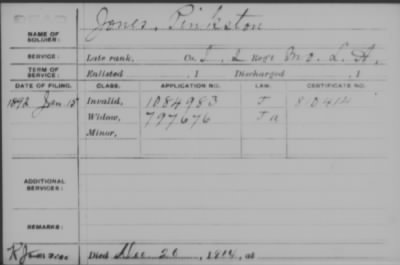 DEAD
NAME OF SOLDIER: Jones, Pinkston
SERVICE: Late rank, Co. I, 2 Reg't Mo. L. A.
TERM OF SERVICE: Enlisted , 1 Discharged , 1
DATE OF FILING. CLASS. APPLICATION NO. LAW. CERTIFICATE NO.
1892 Jan 15 Invalid, 1084983 J 810414
Widow, 797676 Ja
Minor,
ADDITIONAL SERVICES:
REMARKS:
Died 20, 1904, at